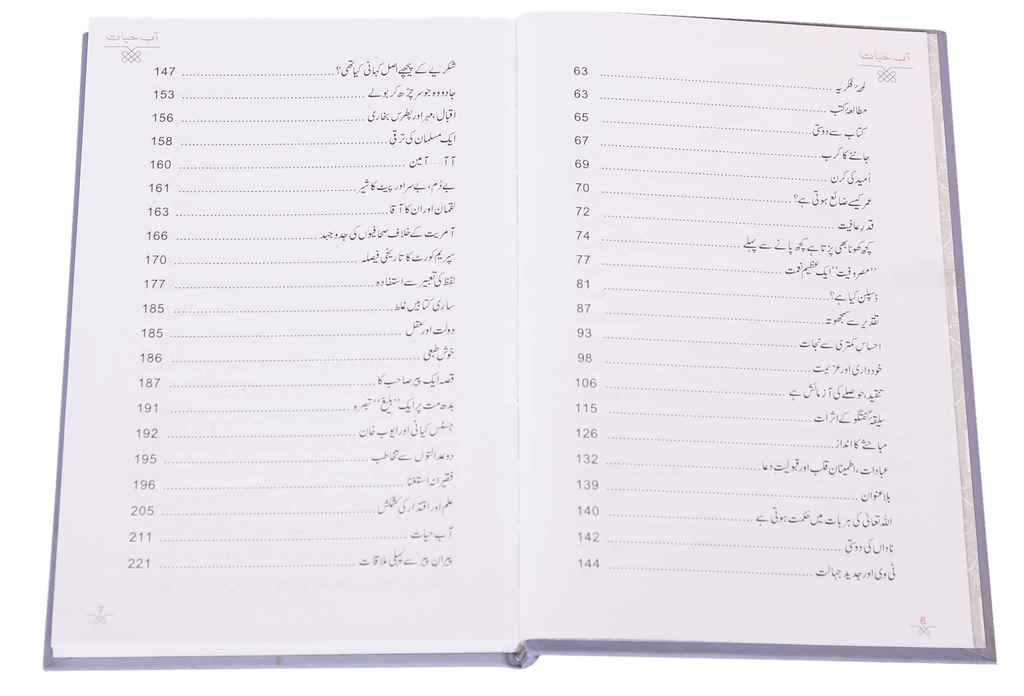 آب حیات
لمحۂ فکریہ 63
مطالعۂ کتب 63
کتاب سے دوستی 65
جاننے کا کرب 67
اُمید کی کرن 69
عمر کیسے ضائع ہوتی ہے؟ 70
قدرِ عافیت 72
کچھ کھونا بھی پڑتا ہے کچھ پانے سے پہلے 74
’’مصروفیت‘‘ ایک عظیم نعمت 77
ڈسپلن کیا ہے؟ 81
تقدیر سے سمجھوتہ 87
احساسِ کمتری سے نجات 93
خودداری اور عزیمت 98
تنقید، حوصلے کی آزمائش ہے 106
سلیقۂ گفتگو کے اثرات 115
مباحثے کا انداز 126
عبادات، اطمینانِ قلب اور قبولیتِ دعا 132
بلاعنوان 139
اللہ تعالیٰ کی ہر بات میں حکمت ہوتی ہے 140
ناداں کی دوستی 142
ٹی وی اور جدید جہالت 144
6
آب حیات
شکریے کے پیچھے اصل کہانی کیا تھی؟ 147
جادو وہ جو سر چڑھ کر بولے 153
اقبال، مہر اور پطرس بخاری 156
ایک مسلمان کی ترقی 158
آ آ ...... آمین 160
بے دُم، بے سر اور پیٹ کا شیر 161
لقمان اور ان کا آقا 163
آمریت کے خلاف صحافیوں کی جدوجہد 166
سپریم کورٹ کا تاریخی فیصلہ 170
لفظ کی تعبیر سے استفادہ 177
ساری کتابیں غلط 185
دولت اور عقل 185
خوش طبعی 186
قصہ ایک پیر صاحب کا 187
بدھ مت پر ایک ’’بلیغ‘‘ تبصرہ 191
جسٹس کیانی اور ایوب خان 192
دو عدالتوں سے تخاطب 195
فقیرانہ استغنا 196
علم اور اقتدار کی کشمکش 205
آب حیات 211
پیرانِ پیر سے پہلی ملاقات 221
7